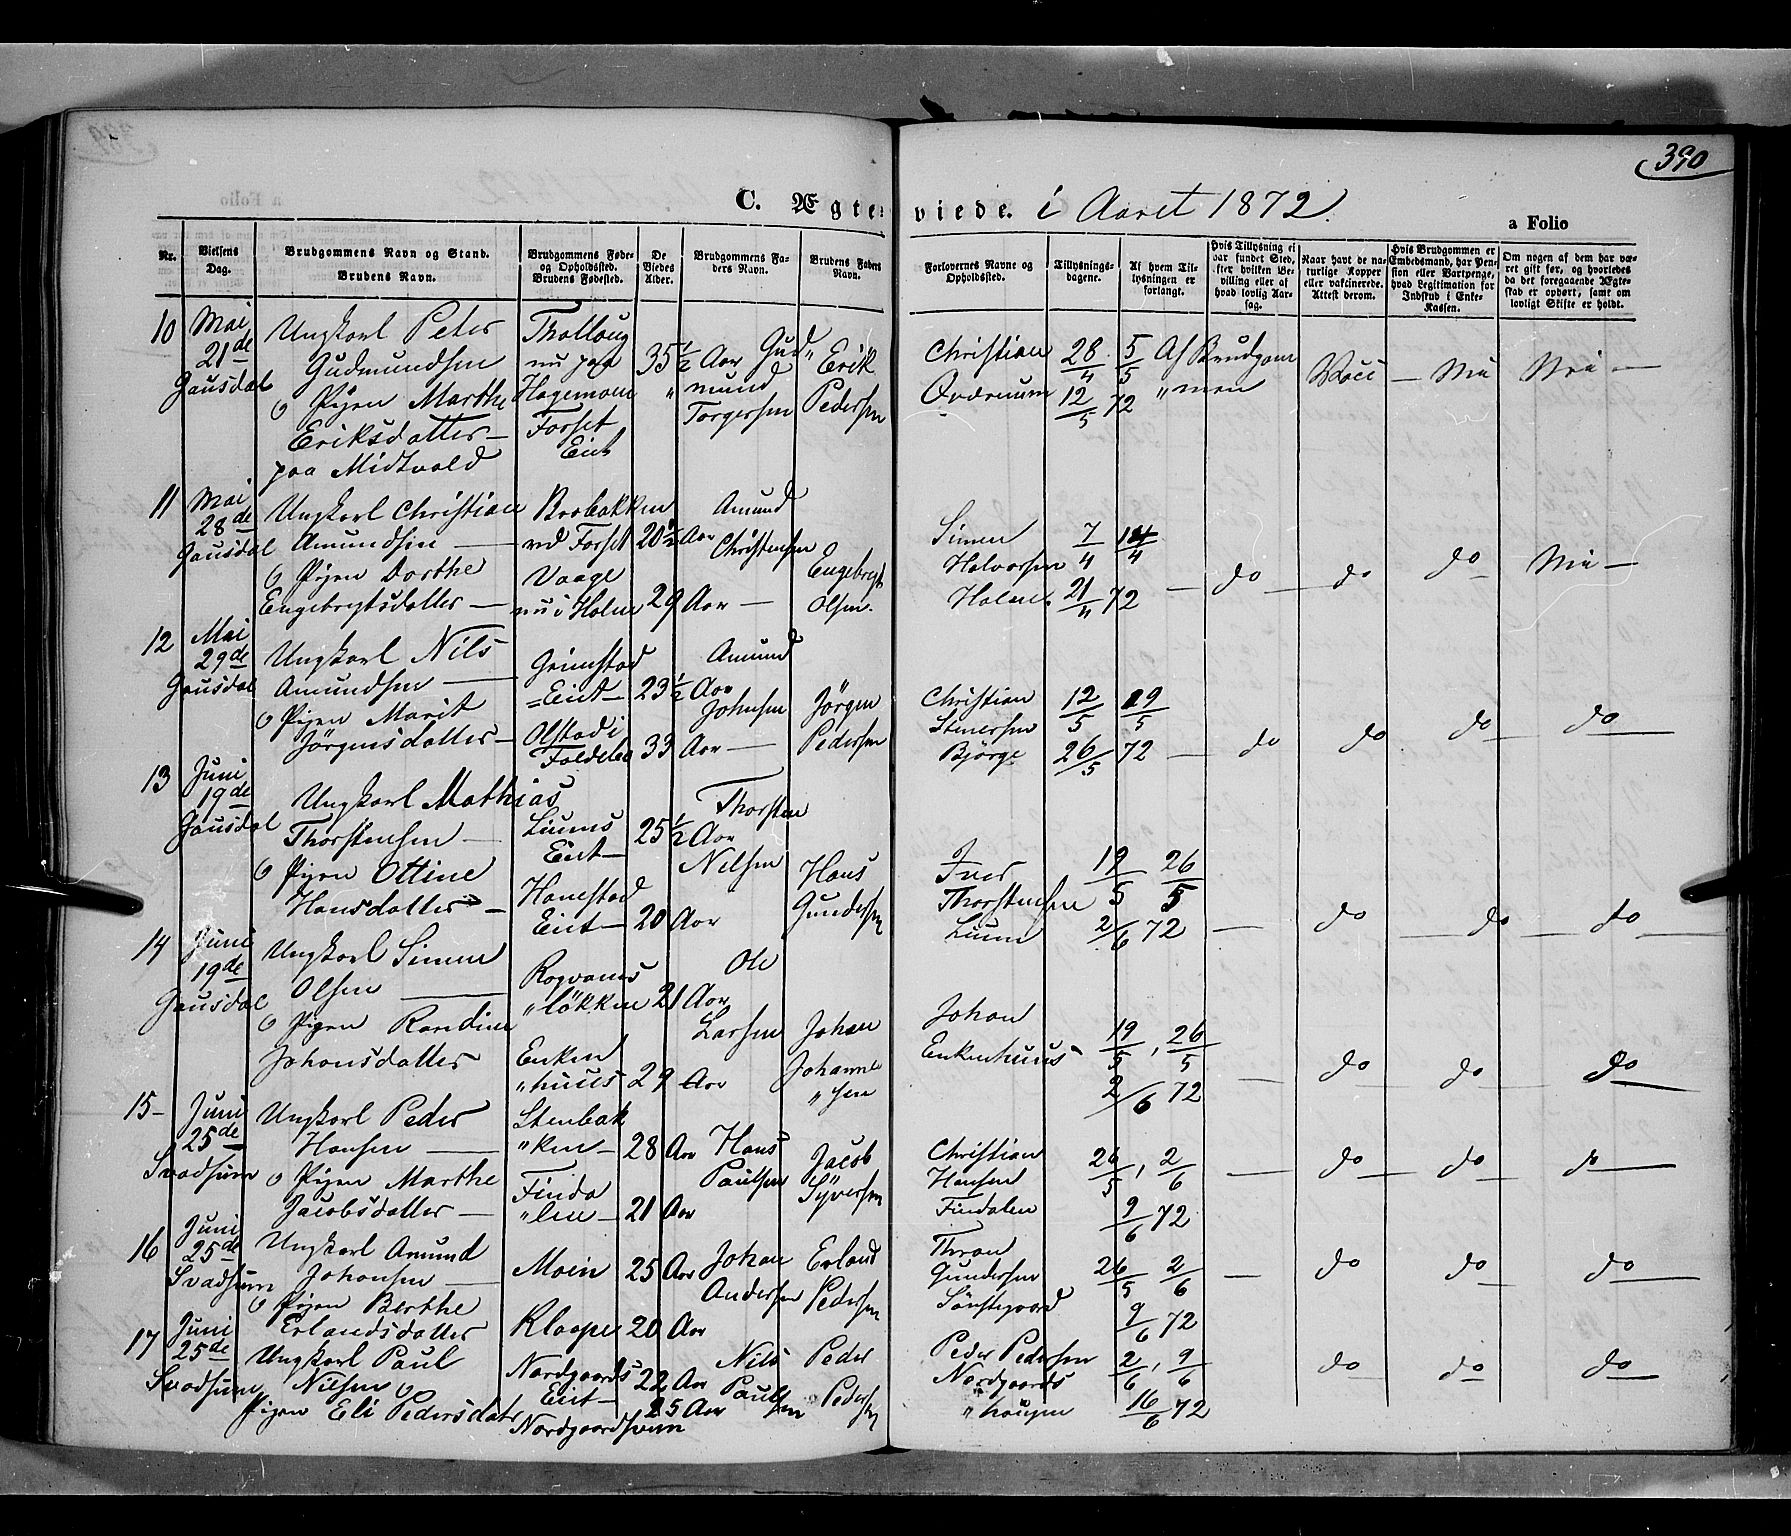 390
C. Ægteviede. i Aaret 1872.
a Folio
Nr.
Vielsens Dag.
Brudgommens Navn og Stand. Brudens Navn.
Brudgommens Føde- og Opholdsted. Brudens Fødested.
De Viedes Alder.
Brudgommens Faders Navn.
Brudens Faders Navn.
Forlovernes Navne og Opholdsted.
Tillysningsdagene.
Af hvem Tillysningen er forlangt.
Hvis Tillysning ei har fundet Sted, efter hvilken Bevilling eller af hvad lovlig Aarsag.
Naar havt de naturlige Kopper eller vakcinerede. Attest derom.
Hvis Brudgommen er Embedsmand, har Pension eller Vartpenge, hvad Legitimation for Indskud i Enke-Kassen.
Om nogen af dem har været gift før, og hvorledes da det foregaaende Ægteskab er ophørt, samt om lovligt Skifte er holdt.
10 Mai 21de Gausdal
Ungkarl Peter Gudmundsen
Pigen Marthe Eriksdatter paa Midtvold
nu paa Forset Eiet
35 1/2 Aar
Gudmund Torgersen
Erik Pedersen
Christian
28/4 5/5 12/5 72
Af Brudgommen
11 Mai 28de Gausdal
Ungkarl Christian Amundsen
Pigen Dorthe Engebregtsdatter
Brobakken ved Forset
Vaage nu i Holme
20 1/2 Aar
29 Aar
Amund Christensen
Engebregt Olsen
Simen Halvorsen Holme
7/4 14/4 21/4 72
do do do Nei
12 Mai 29de Gausdal
Ungkarl Nils Amundsen
Pigen Marit Jörgensdatter
Grimstad Eiet
Olstad i
23 1/2 Aar
33 Aar
Amund Johnsen
Jörgen Pedersen
Christian Stenersen Björge
12/5 19/5 26/5 72
do do do do
13 Juni 19de Gausdal
Ungkarl Mathias Thorstensen
Pigen Ottine Hansdatter
Liums Eiet
Hanestad Eiet
25 1/2 Aar
20 Aar
Thorsten Nilsen
Hans Gundersen
Iver Thorstensen Lium
19/5 26/5 2/6 72
do do do
14 Juni 19de Gausdal
Ungkarl Simen Olsen
Pigen Randine Johansdatter
lökken
Enkenhuus
21 Aar
29 Aar
Ole Larsen
Johan Johannesen
Johan Enkenhuus
19/5, 26/5 2/6 72
do do do
15 Juni 25de Svadsum
Ungkarl Peder Hansen
Pigen Marthe Jacobsdatter
Stenbakken
Findalen
28 Aar
21 Aar
Hans Paulsen
Jacob Syversen
Christian Hansen Findalen
26/5, 2/6 9/6 72
do do do
16 Juni 25de Svadsum
Ungkarl Amund Johansen
Pigen Berthe Erlandsdatter
Moen
Klaape
25 Aar
20 Aar
Johan Andersen
Erland Pedersen
Thron Gundersen
26/5 2/6 9/6 72
do do do
17 Juni 25de Svadsum
Ungkarl Paul Nilsen
Pigen Eli Pedersdatr
Nordgaards Eiet
22 Aar
25 Aar
Nils Paulsen
Peder Pedersen
Peder Pedersen Nordgaardshougen
2/6, 9/6 16/6 72
do do do